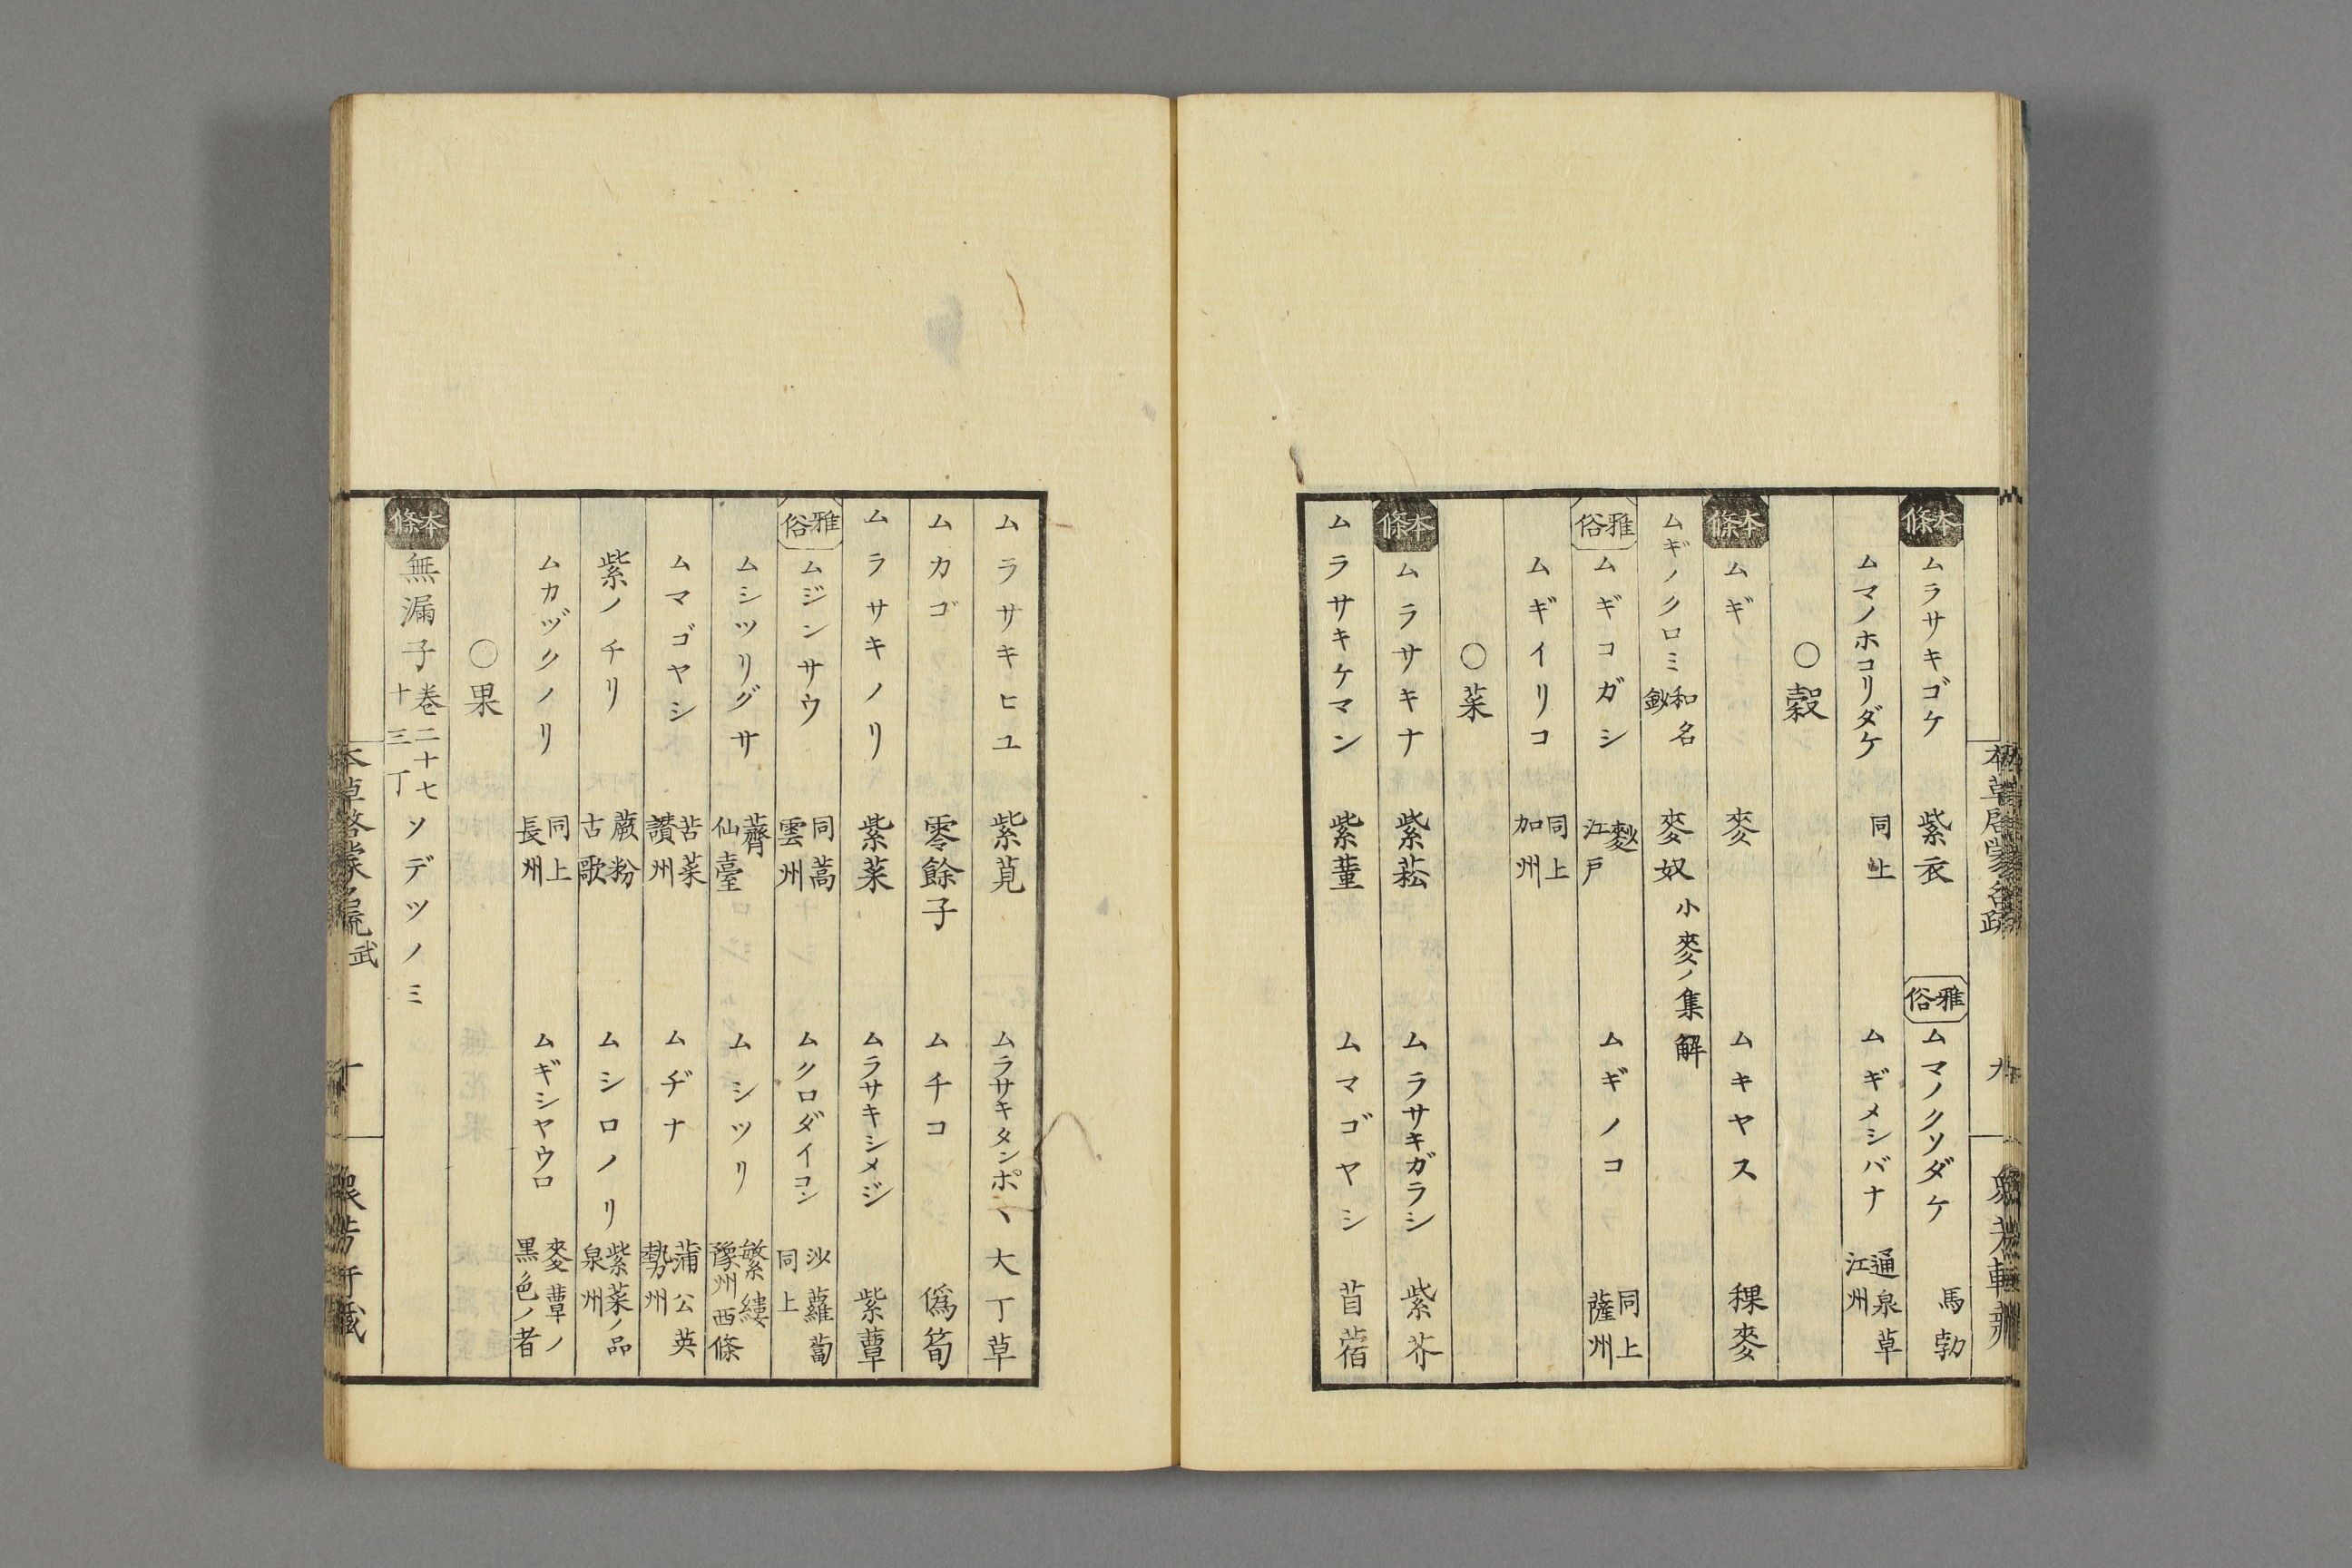 本條 ムラサキゴケ 紫衣 雅俗 ムマノクソダケ 馬勃
ムマノホコリダケ 同上 ムギメシバナ 通泉草 江州
〇穀
本條 ムギ 麥 ムキヤス 稞麥
ムギノクロミ 和名鈔 麥奴 小麥ノ集解
雅俗 ムギコガシ 麨 江戸 ムギノコ 同上 薩州
ムギイリコ 同上 加州
〇菜
本條 ムラサキナ 紫菘 ムラサキガラシ 紫芥
ムラサキケマン 紫菫 ムマゴヤシ 苜蓿
ムラサキヒユ 紫莧 ムラサキタンポヽ 大丁草
ムカゴ 零餘子 ムチコ 僞筍
ムラサキノリ 紫菜 ムラサキシメジ 紫蕈
雅俗 ムジンサウ 同蒿 雲州 ムクロダイコン 沙蘿蔔 同上
ムシツリグサ 薺 仙臺 ムシツリ 繁縷 豫州西條
ムマゴヤシ 苦菜 讃州 ムヂナ 蒲公英 勢州
紫ノチリ 蕨粉 古歌 ムシロノリ 紫菜ノ品 泉州
ムカヅクノリ 同上 長州 ムギシヤウロ 麥蕈ノ黒色ノ者
〇果
本條 無漏子 巻二十七 十三丁 ソデツノミ
武
十